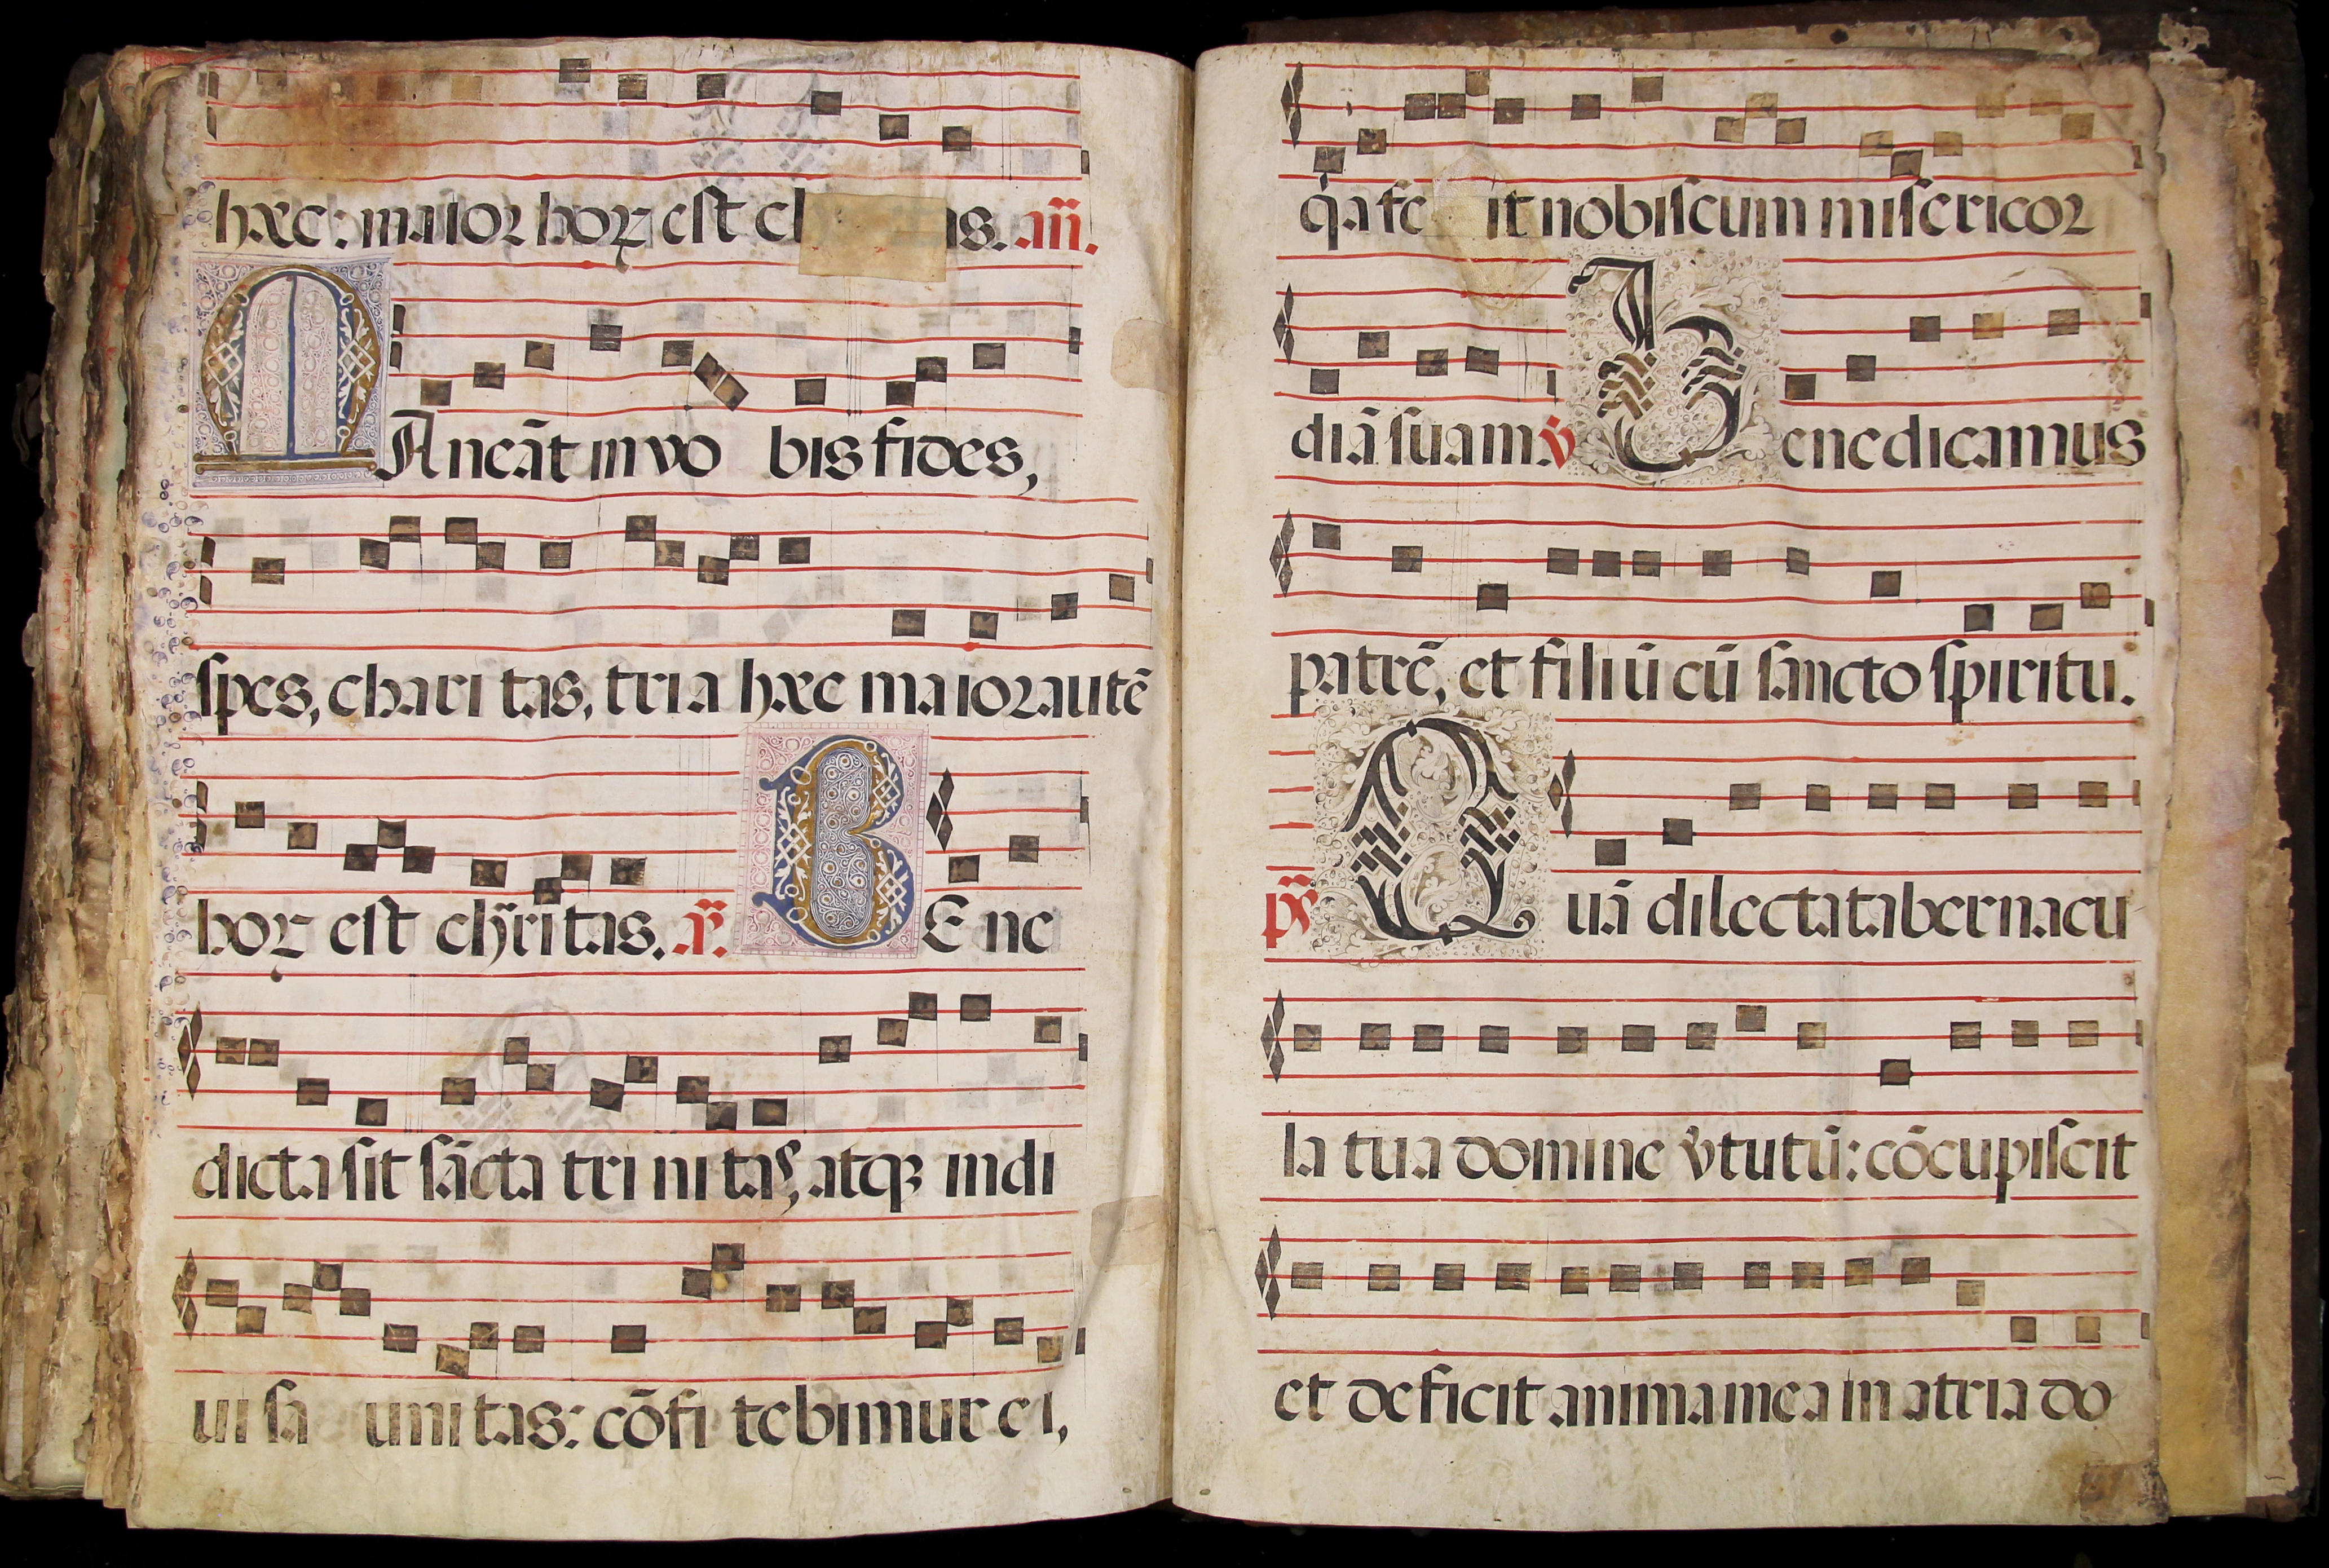 hæc: maior hoꝝ est as. añ.
MAneāt in vo bis fides,
spes, chari tas, tria hæc maior autē
hoꝝ est chr̃itas. ỹ. BEne
dicta sit sācta tri nitas, atqꝫ indi
ui sa uni tas: cōfi tebimur ei,
q̇a fe it nobiscum misericor
diā suam. v̇ Benedicamus
patrē, et filiū cū sancto spiritu.
ps̃ Quā dilecta tabernacu
la tua domine v̇tutū: cōcupiscit
et deficit anima mea in atria do